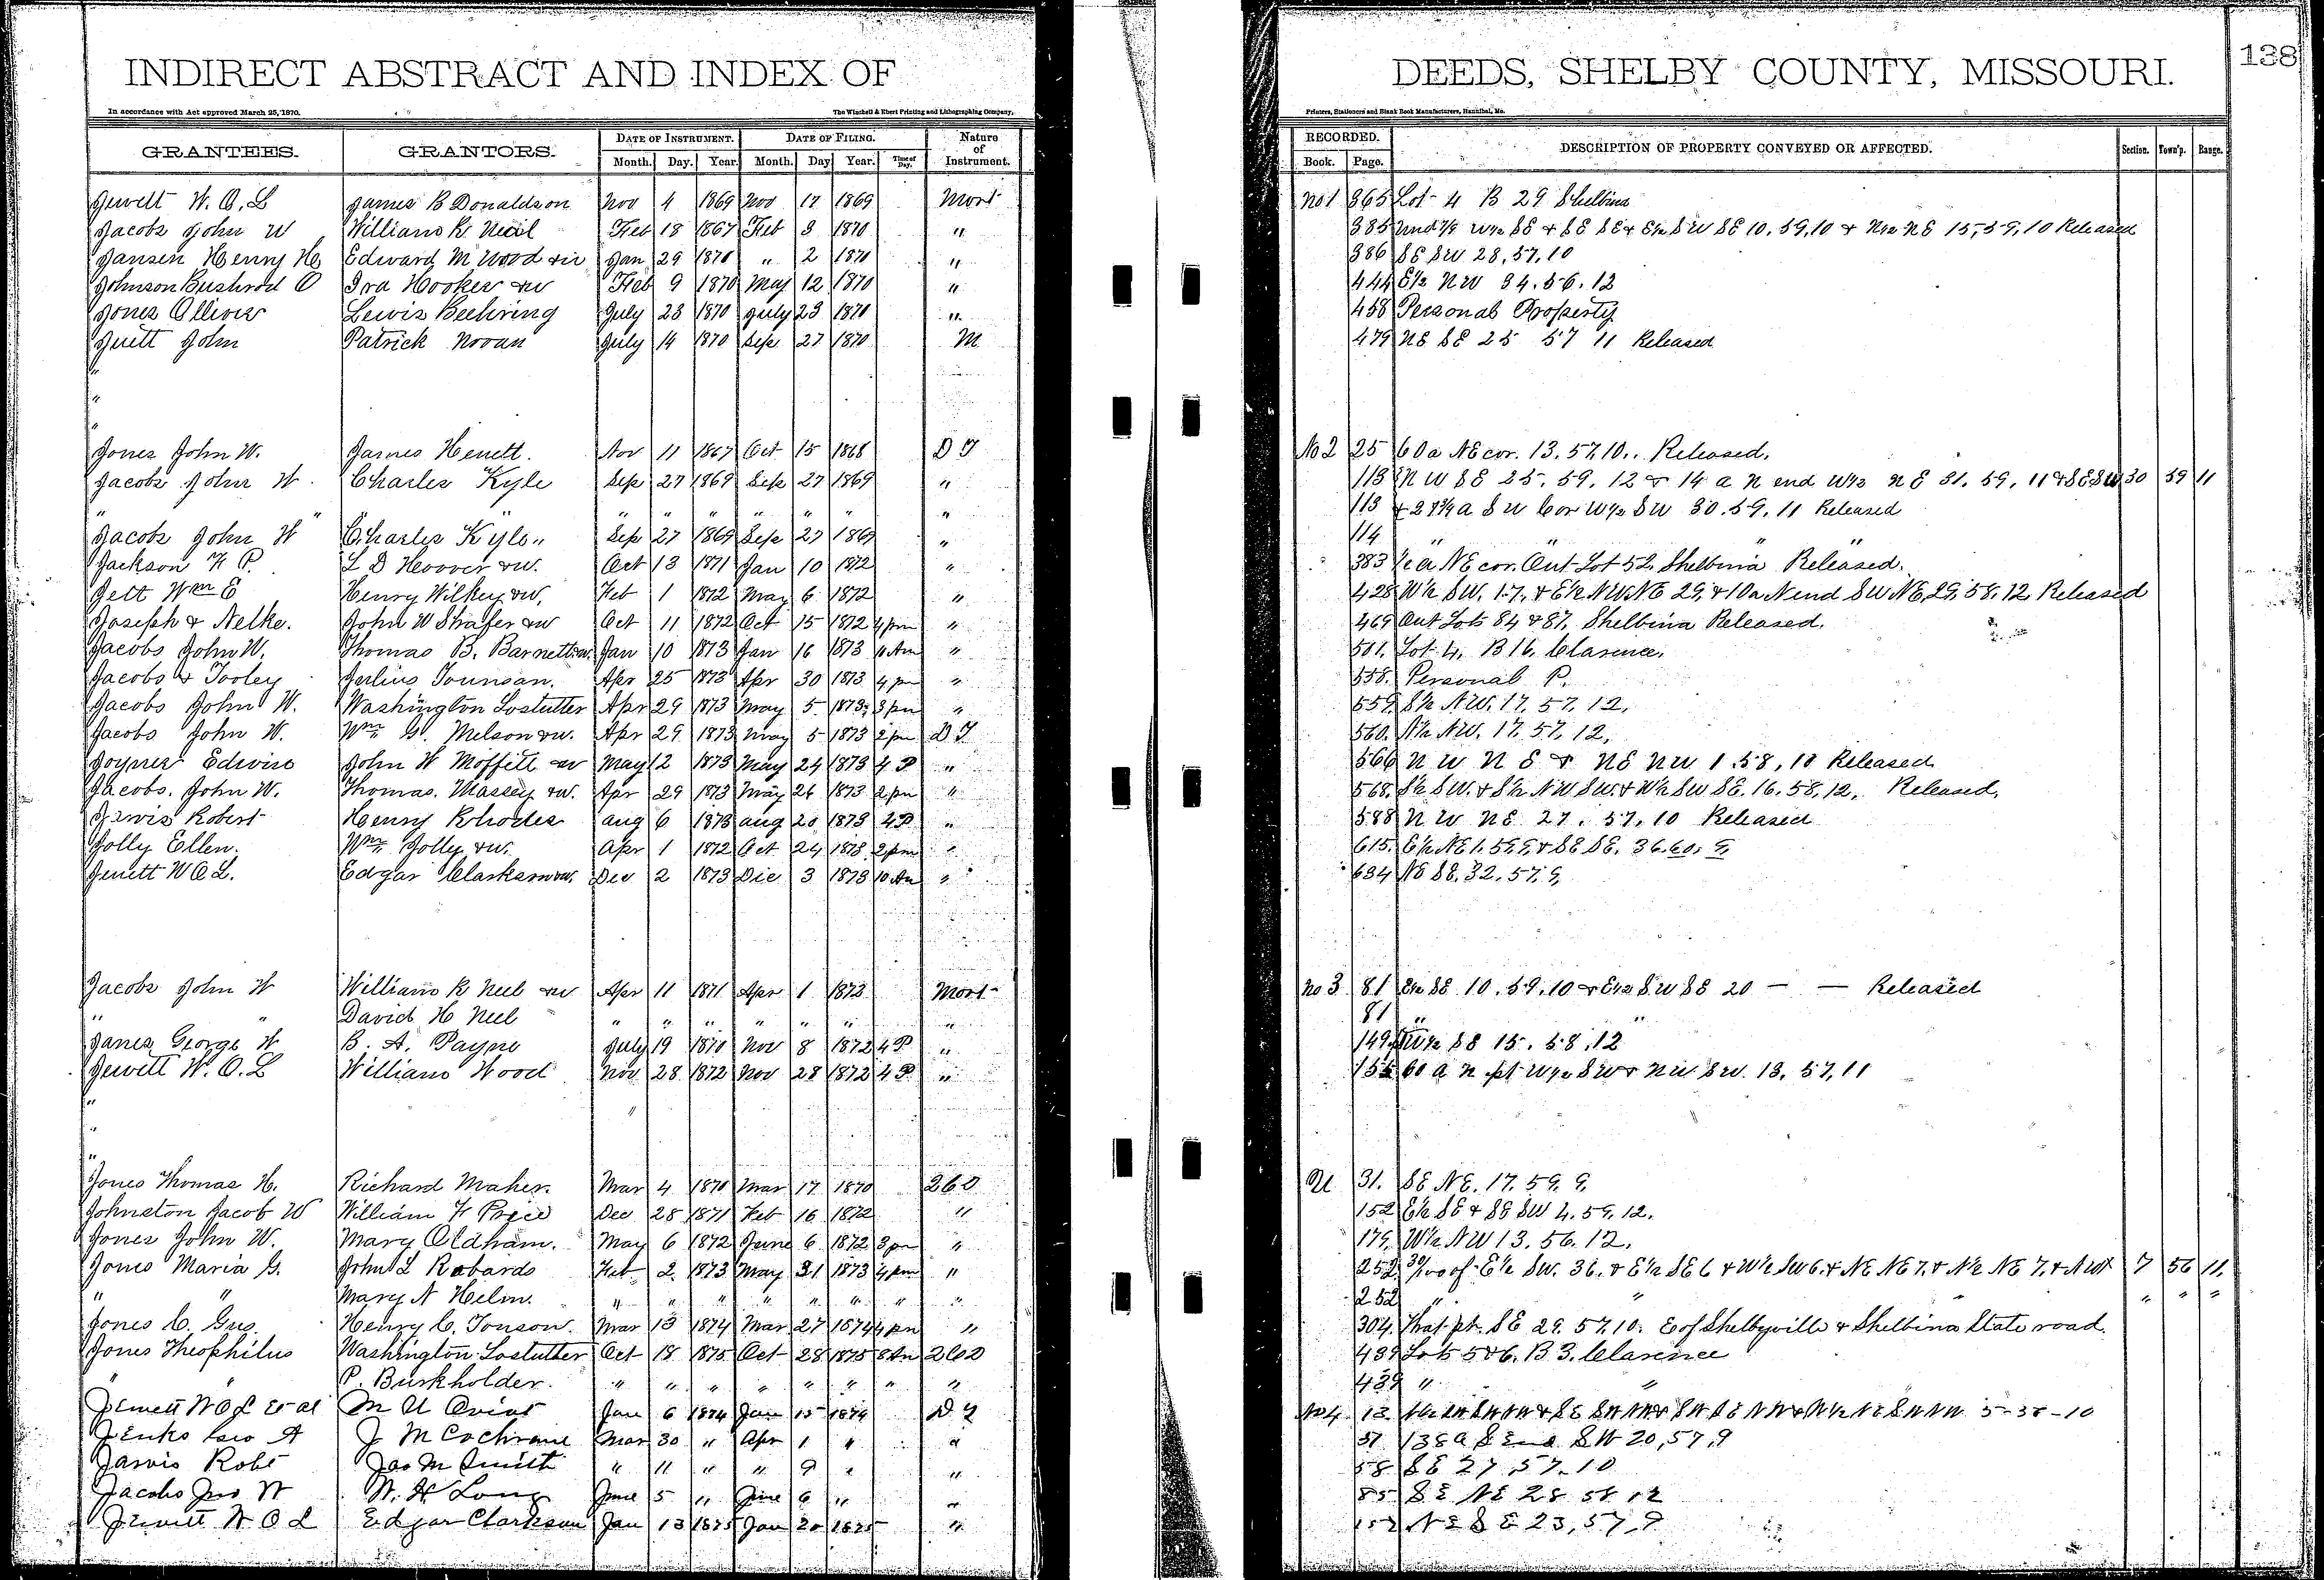 INDIRECT ABSTRACT AND INDEX OF DEEDS, SHELBY COUNTY, MISSOURI. 138
In accordance with Act approved March 25, 1870. The Winchell & Ebert Printing and Lithographing Company, Printers, Stationers and Blank Book Manufacturers, Hannibal, Mo.
GRANTEES. GRANTORS. DATE OF INSTRUMENT. DATE OF FILING. Nature of Instrument. RECORDED. DESCRIPTION OF PROPERTY CONVEYED OR AFFECTED. Section. Town'p. Range.
Month. Day. Year. Month. Day Year. Time of Day. Book. Page.
Jewett W. O. L James B Donaldson Nov 4 1869 Nov 17 1869 Mort No 1 365 Lot 4 B 29 Shelbina
Jacobs John W William R Neil Feb 18 1867 Feb 3 1870 " 385 W½ SE & SE SE & E½ SW SE 10. 59. 10 & N½ NE 15, 59, 10 Released
Jansen Henry H Edward M Wood Jan 29 1870 " 2 1870 " 386 SE SW 28, 57, 10
Johnson Bushrod O Ira Hooker &w Feb 9 1870 May 12 1870 " 444 E½ NW 34. 56. 12
Jones Olliver Lewis Beehring July 23 1870 July 23 1870 " 458 Personal Property
Juett John Patrick Novan July 14 1870 Sep 27 1870 M 479 NE SE 25 57 11 Released
"
"
"
Jones John W. James Hewett. Nov 11 1867 Oct 15 1868 D T No 2 25 60 a NE cor. 13. 57, 10. Released.
Jacobs John W. Charles Kyle Sep 27 1869 Sep 27 1869 " 113 NW SE 25. 59. 12 & 14 a N end W½ NE 31. 59. 11 & SE SW 30 59 11
" " " " " " " " " 113 SW Cor W½ SW 30. 59. 11 Released
Jacobs John W Charles Kyle Sep 27 1869 Sep 27 1869 " 114 " " "
Jackson F P. L D Hoover &w. Oct 13 1871 Jan 10 1872 " 383 ½ a NE cor. Out Lot 52, Shelbina Released.
Jett Wm E Henry Wilkey &w. Feb 1 1872 May 6 1872 " 428 W½ SW. 17. & E½ NW NE 29, & 10 a N end SW NE, 29, 58, 12, Released
Joseph & Nelke. John W Shafer &w Oct 11 1872 Oct 15 1872 4 pm " 469 Out Lots 84 & 87, Shelbina Released.
Jacobs John W. Thomas B. Barnett &w. Jan 10 1873 Jan 16 1873 11 Am " 501. Lot 4, B 16. Clarence.
Jacobs & Tooley Julius Tounsan. Apr 25 1873 Apr 30 1873 4 pm " 558. Personal P.
Jacobs John W. Washington Lostutter Apr 29 1873 May 5 1873 3 pm " 559. S½ NW. 17. 57. 12.
Jacobs John W. Wm G. Melson &w. Apr 29 1873 May 5 1873 2 pm D T 560. N½ NW. 17. 57. 12.
Joyner Edwin John W Moffitt &w May 12 1873 May 24 1873 4 P " 566 NW NE & NE NW 1. 58. 10 Released
Jacobs. John W. Thomas. Massey &w. Apr 29 1873 May 26 1873 2 pm " 568. S½ SW. & S½ NW SW. & W½ SW SE. 16. 58, 12. Released.
Jarvis Robert Henry Rhodes Aug 6 1873 Aug 20 1873 4 P " 588 NW NE 27. 57, 10 Released
Jolly Ellen. Wm Jolly &w. Apr 1 1872 Oct 24 1873 2 pm " 615. E½ NE 1. 59, 9, & SE SE. 36. 60. 9,
Jewett W O L. Edgar Clarkson &w. Dec 2 1873 Dec 3 1873 10 Am " 634 NE SE. 32. 57. 9,
Jacobs John W William R Neel &w Apr 11 1871 Apr 1 1872 Mort No 3 81 E½ SE 10. 59. 10 & E½ SW SE 20 — — Released
" " David H Neel " " " " " " " 81 " "
Janes George W B. A. Payne July 19 1870 Nov 8 1872 4 P " 149 SE 15. 58. 12
Jewett W. O. L William Wood Nov 28 1872 Nov 28 1872 4 P " 155 60 a N pt W½ SW & NW SW. 13. 57, 11
"
"
"
Jones Thomas H. Richard Maher. Mar 4 1870 Mar 17 1870 2 G D U 31. SE NE. 17. 59. 9.
Johnston Jacob W William F Price Dec 28 1871 Feb 16 1872 " 152 E½ SE & SE SW 4. 59. 12.
Jones John W. Mary Oldham. May 6 1872 June 6 1872 3 pm " 179. W½ NW 13. 56. 12.
Jones Maria G. John L Robards Feb 2 1873 May 31 1873 4 pm " 252. of E½ SW. 36. & E½ SE 6 & W½ SW 6. & NE NE 7. & N½ NE 7. & NW 7 56 11.
" " Mary N Helm. " " " " " " " " 252 " " " " "
Jones C. Gus. Henry C. Tonson. Mar 13 1874 Mar 27 1874 4 pm " 304. That pt. SE 29. 57. 10. E of Shelbyville & Shelbina State road.
Jones Theophilus Washington Lostutter Oct 18 1875 Oct 28 1875 8 Am 2 G D 439 Lots 5 & 6. B 3. Clarence
" " P. Burkholder. " " " " " " " " 439 " "
Jewett W O L et al Jan 6 1874 Jan 15 1874 D T No 4 13 5-58-10
Jenks Geo A J M Cochrane Mar 30 " Apr 1 " " 37 138 a S End SW 20, 57, 9
Jarvis Robt Jas M Smith " 11 " " 9 " " 58 SE 27, 57, 10
Jacobs Jno W W. H Long June 5 " June 6 " " 85 SE NE 28 58 12
Jewett W O L Edgar Clarkson Jan 13 1875 Jan 20 1875 " 152 NE SE 23, 57, 9